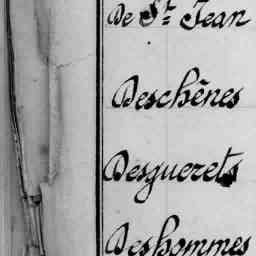 De St. Jean
Deschênes
Desguerets
Deshommes